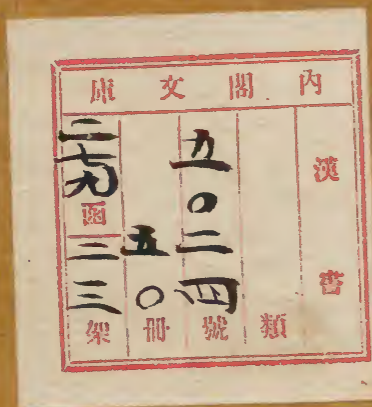 內閣文庫
漢書
類
五〇二四號
五〇冊
二七九函二三架